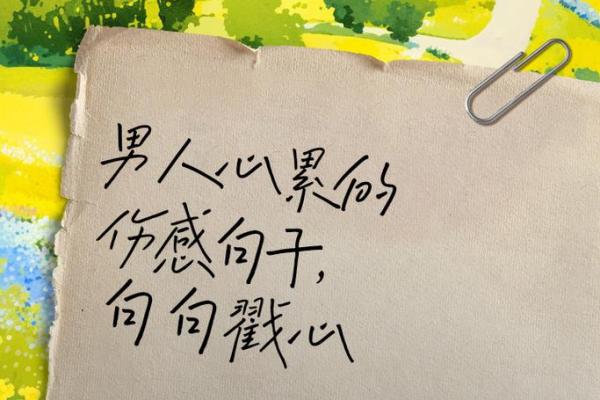 男人心累的
伤感句子，
句句戳心